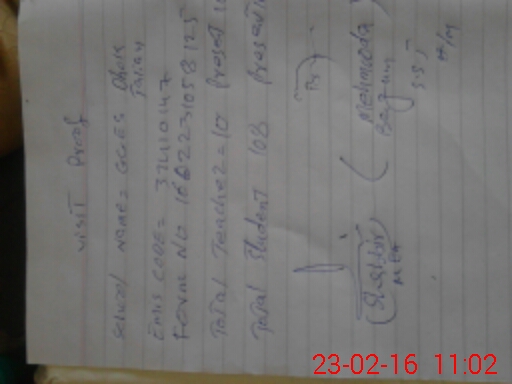 visit Proof
School Name = GGES Dhok
EMIS CODE = 37410147
Form No 1682231058125
Total Teacher = 10 Present
Total Student 108 Present
(Mehmooda
Begum)
SST
H/M
MEA
23-02-16 11:02